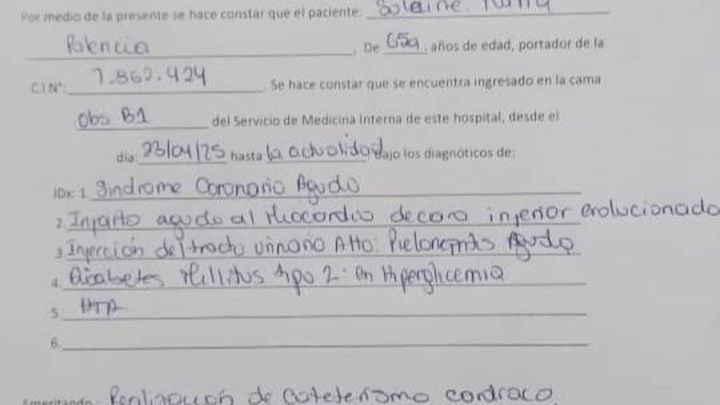 Por medio de la presente se hace constar que el paciente: Solaine
Palencia, De 65a, años de edad, portador de la
C.I N°: 7.862.424 Se hace constar que se encuentra ingresado en la cama
Obs B1 del Servicio de Medicina Interna de este hospital, desde el
día: 23/04/25 hasta la actualidad bajo los diagnóticos de:
IDx: 1. Sindrome Coronario Agudo
2. Infarto agudo al Miocardio de cara inferior evolucionado
3. Infección del tracto urinario Alto: Pielonefritis Aguda
4. Diabetes Mellitus tipo 2: en Hiperglicemia
5. HTA
6.
Ameritando: Realización de cateterismo cardiaco